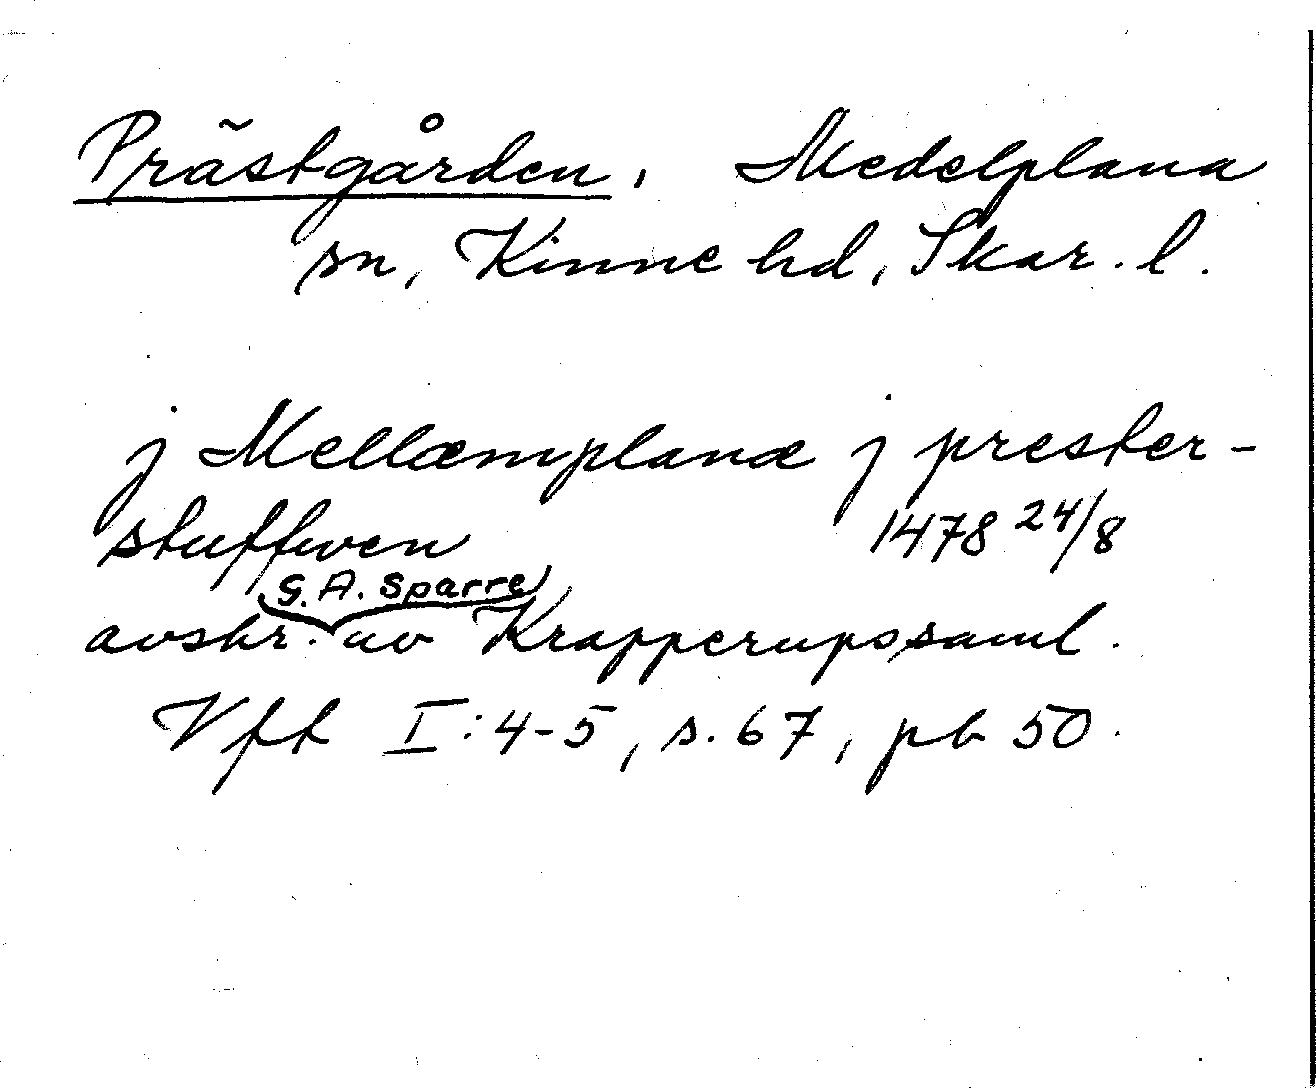 Prästgården, Medelplana
sn, Kinne hd, Skar. l.
j Mellæmplanæ j prester-
stuffwen 1478 24/8
G. A. Sparre
avskr. av Krapperupssaml.
Vft I:4-5, s. 67, pb 50.